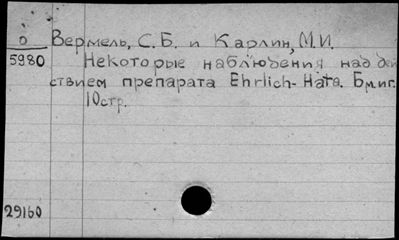 О Вермель, С.Б. и Карлин, М.И.
5980 Некоторые наблюдения над дей
ствием препарата Ehrlich-Hata. Бмиг.
10стр.
29160